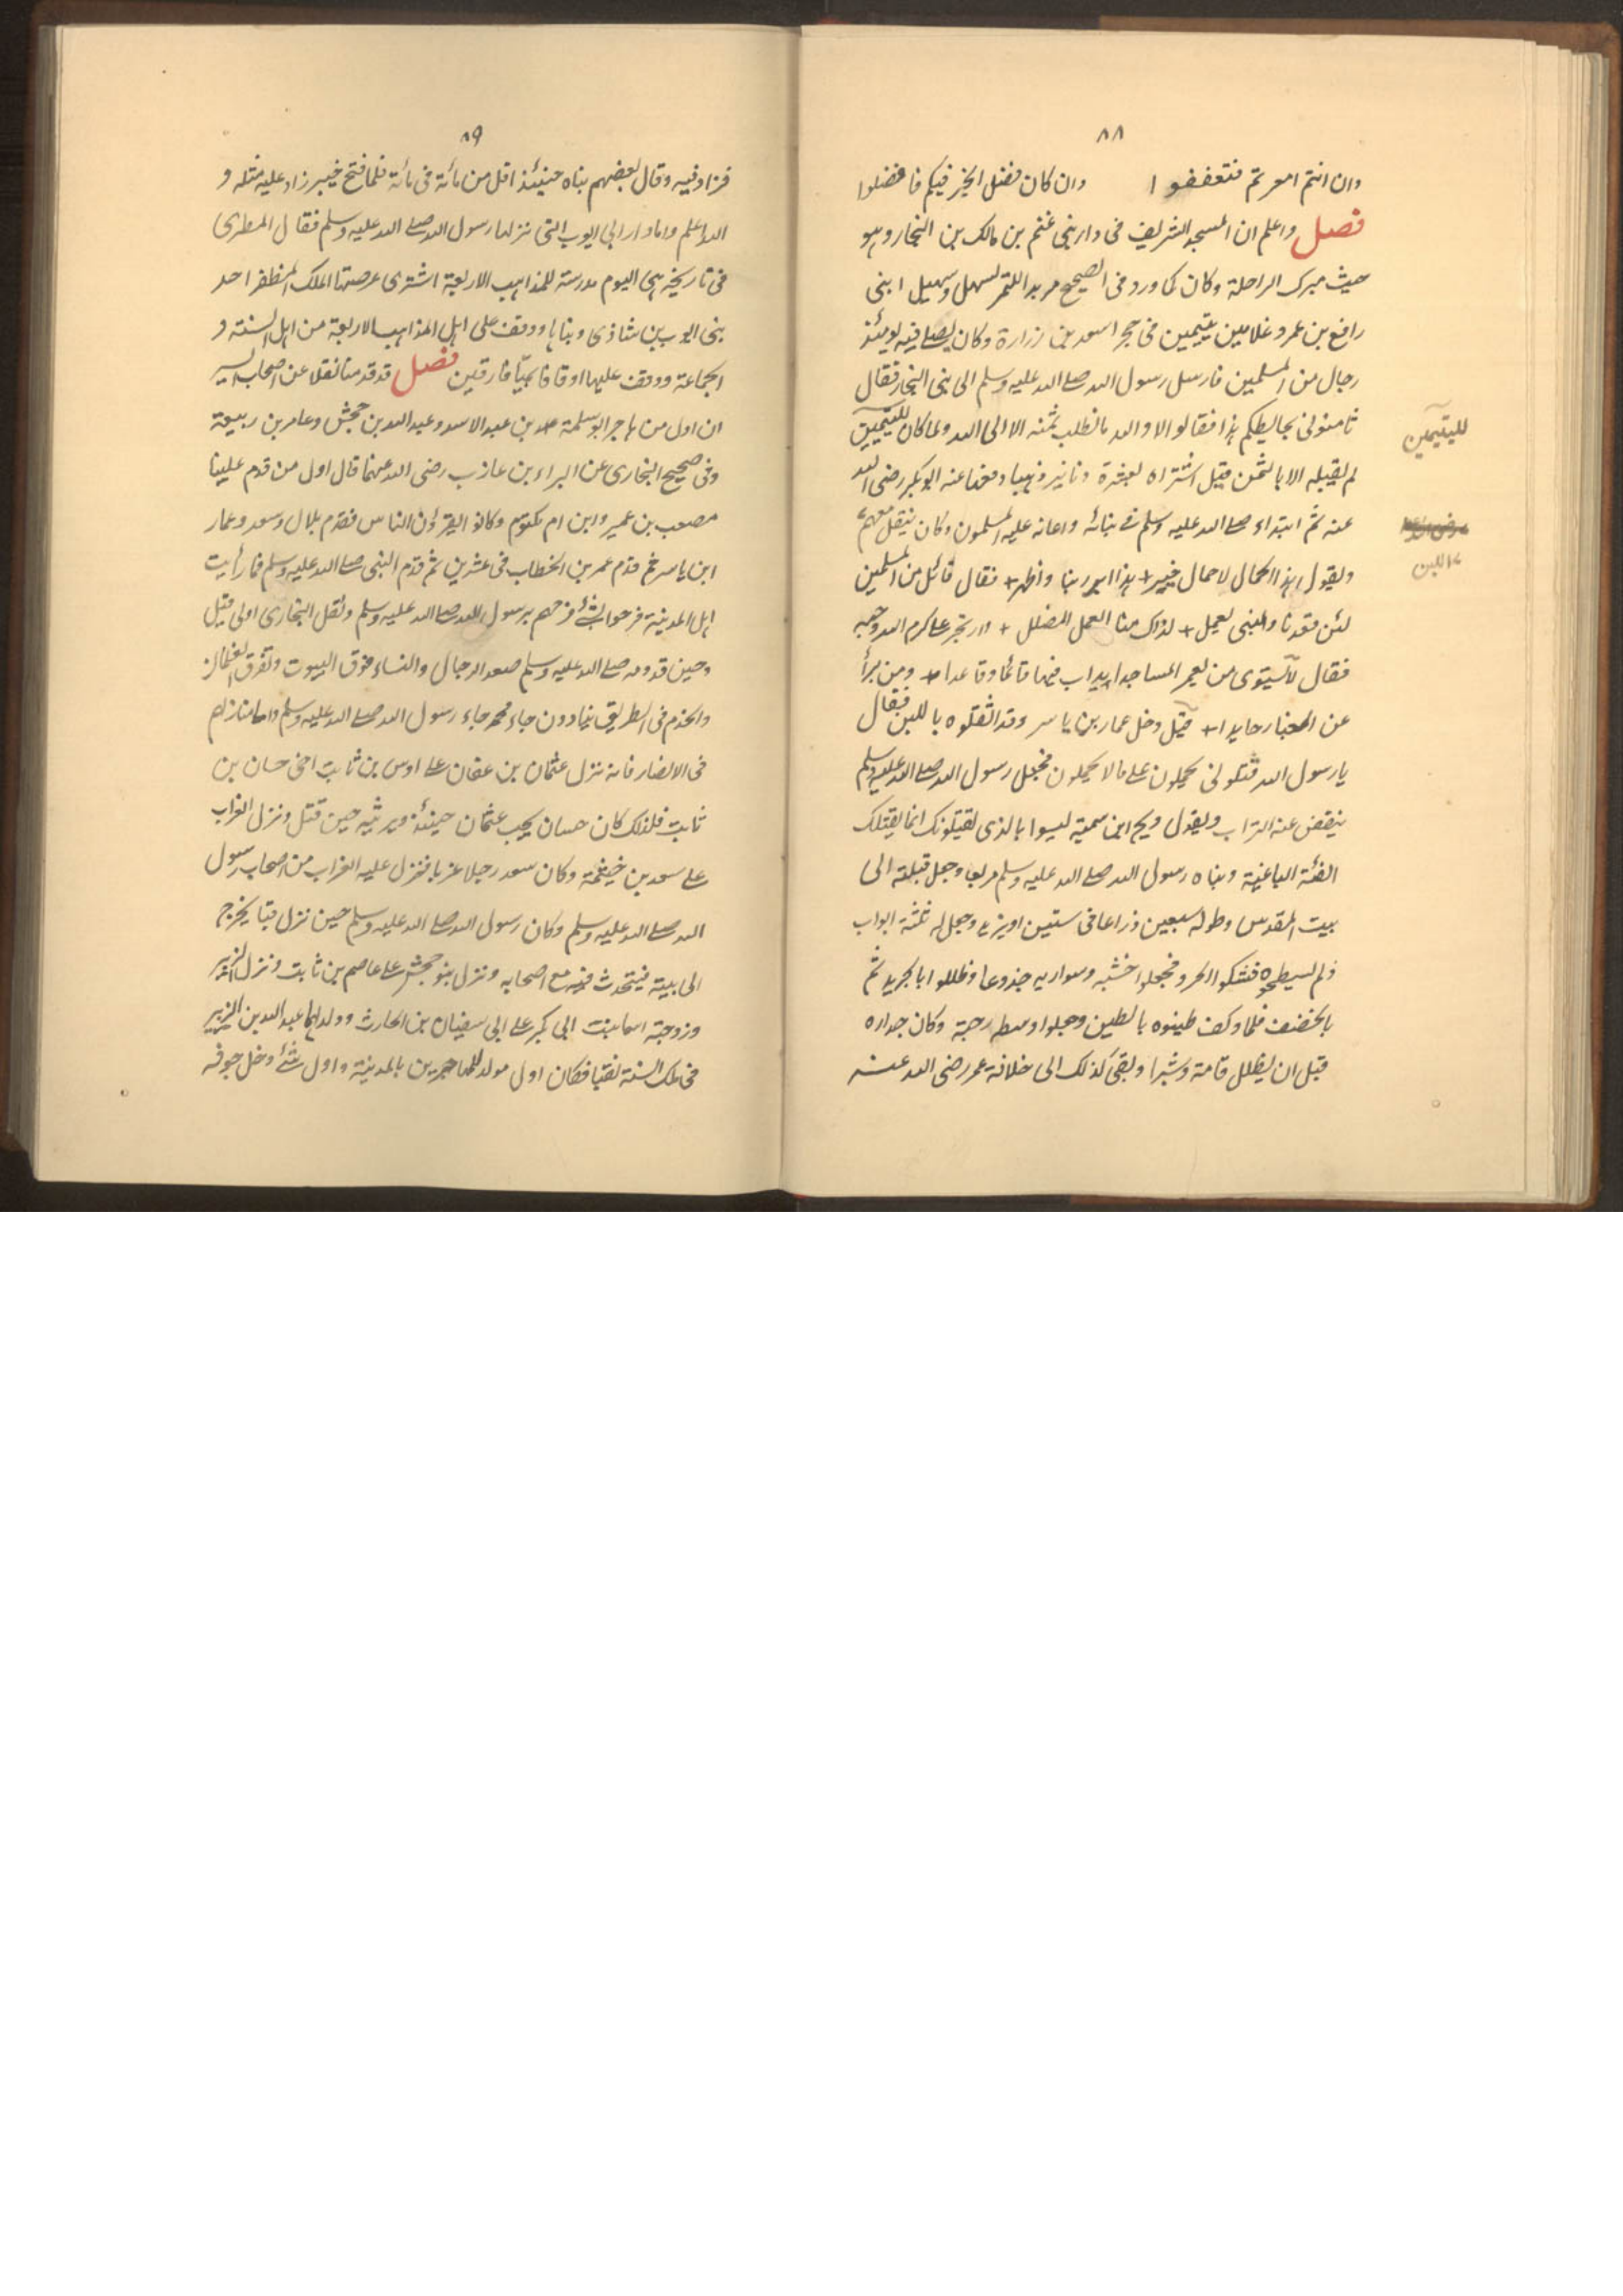 ٨٨
وان انتم امعرتم فتعففوا وان كان فضل الخير فيكم فافضلوا
فصل واعلم ان المسجد الشريف فى دار بنى غنم بن مالك بن النجار وهو
حيث مبرك الراحلة وكان كما ورد فى الصحيح مربدا للتمر لسهل وسهيل ابنى
رافع بن عمرو غلامين يتيمين فى حجر اسعد بن زرارة وكان يصلى فيه يومئذ
رجال من المسلمين فارسل رسول الله صلى الله عليه وسلم الى بنى النجار فقال
ثامنونى بحائطكم هذا فقالوا لا والله ما نطلب ثمنه الا الى الله ولما كان لليتيمين
لليتيمين
لم يقبله الا بالثمن قيل اشتراه بعشرة دنانير ذهبا دفعها عنه ابو بكر رضى الله
عنه ثم ابتداء صلى الله عليه وسلم فى بنائه واعانه عليه المسلمون وكان ينقل معهم
اللبن
ويقول هذا الحمال لا حمال خيبر + هذا ابر ربنا واطهر + فقال قائل من المسلمين
لئن قعدنا والنبى يعمل + لذاك منا العمل المضلل + وارتجز على كرم الله وجهه
فقال لا يستوى من يعمر المساجدا يداب فيها قائما وقاعدا + ومن يرأ
عن الغبار حايدا + قيل دخل عمار بن ياسر وقد اثقلوه باللبن فقال
يا رسول الله قتلونى يحملون على ما لا يحملون فجعل رسول الله صلى الله عليه وسلم
ينفض عنه التراب ويقول ويح ابن سمية ليسوا بالذى يقتلونك انما يقتلك
الفئة الباغية وبناه رسول الله صلى الله عليه وسلم مربعا وجعل قبلته الى
بيت المقدس وطوله سبعين ذراعا فى ستين او يزيد وجعل له ثلثة ابواب
ولم يسطحوه فشكوا الحر فجعلوا خشبه وسواريه جذوعا وظللوا بالجريد ثم
بالخصف فلما وكف طينوه بالطين وجعلوا وسطه رحبة وكان جداره
قبل ان يظلل قامة وشبرا وبقى كذلك الى خلافة عمر رضى الله عنه
٨٩
فزاد فيه وقال بعضهم بناه حينئذ اقل من مائة فى مائة فلما فتح خيبر زاد عليه مثله و
الله اعلم واما دار ابى ايوب التى نزلها رسول الله صلى الله عليه وسلم فقال المطرى
فى تاريخه هى اليوم مدرسة للمذاهب الاربعة اشترى عرصتها الملك المظفر احد
بنى ايوب بن شاذى وبناها ووقف على اهل المذاهب الاربعة من اهل السنة و
الجماعة ووقف عليها اوقافا بميّافارقين فصل قد قدمنا نقلا عن اصحاب السير
ان اول من هاجر ابو سلمة عبد بن عبد الاسد وعبد الله بن جحش وعامر بن ربيعة
وفى صحيح البخارى عن البراء بن عازب رضى الله عنهما قال اول من قدم علينا
مصعب بن عمير وابن ام مكتوم وكانوا يقرؤن الناس فقدم بلال وسعد وعمار
ابن ياسر ثم قدم عمر بن الخطاب فى عشرين ثم قدم النبى صلى الله عليه وسلم فما رأيت
اهل المدينة فرحوا بشئ فرحهم برسول الله صلى الله عليه وسلم ونقل البخارى اولى قيل
وحين قدومه صلى الله عليه وسلم صعد الرجال والنساء فوق البيوت وتفرق الغلمان
والخدم فى الطريق ينادون جاء محمد جاء رسول الله صلى الله عليه وسلم واما منازلهم
فى الانصار فانه نزل عثمان بن عفان على اوس بن ثابت اخى حسان بن
ثابت فلذلك كان حسان يحب عثمان حينئذ ويرثيه حين قتل ونزل العزاب
على سعد بن خيثمة وكان سعد رجلا عزبا فنزل عليه العزاب من اصحاب رسول
الله صلى الله عليه وسلم وكان رسول الله صلى الله عليه وسلم حين نزل قبا يخرج
الى بيته فيتحدث فيه مع اصحابه ونزل بنو جحش على عاصم بن ثابت ونزل الزبير
وزوجته اسما بنت ابى بكر على ابى سفيان بن الحارث وولد لهما عبد الله بن الزبير
فى تلك السنة بقبا فكان اول مولد للمهاجرين بالمدينة واول شئ دخل جوفه